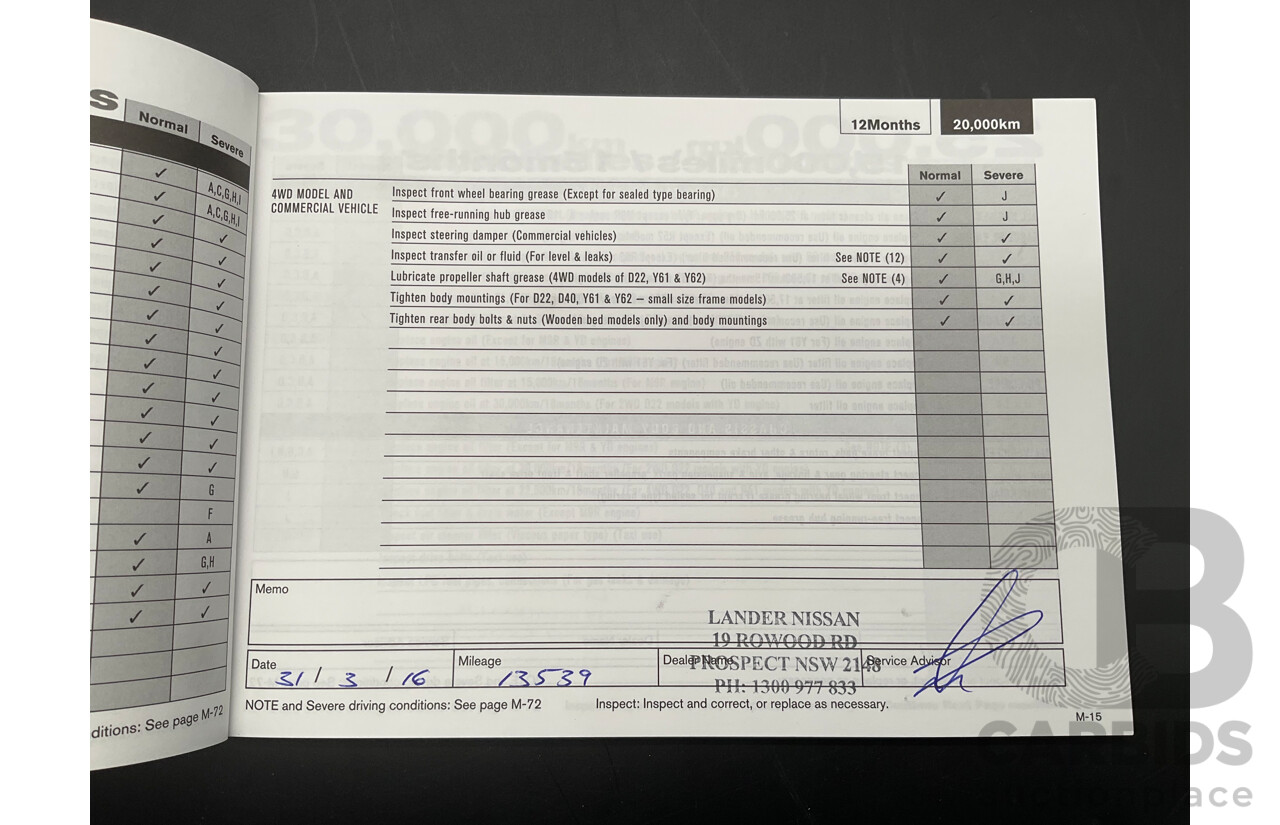 S
Normal
Severe
✓ A,C,G,H,I
✓ A,C,G,H,I
✓ ✓
✓ ✓
✓ ✓
✓ ✓
✓ ✓
✓ ✓
✓ ✓
✓ ✓
✓ ✓
✓ ✓
✓ ✓
✓ G
F
✓ A
✓ G,H
✓ ✓
✓ ✓
ditions: See page M-72
12Months 20,000km
Normal Severe
4WD MODEL AND COMMERCIAL VEHICLE
Inspect front wheel bearing grease (Except for sealed type bearing) ✓ J
Inspect free-running hub grease ✓ J
Inspect steering damper (Commercial vehicles) ✓ ✓
Inspect transfer oil or fluid (For level & leaks) See NOTE (12) ✓ ✓
Lubricate propeller shaft grease (4WD models of D22, Y61 & Y62) See NOTE (4) ✓ G,H,J
Tighten body mountings (For D22, D40, Y61 & Y62 – small size frame models) ✓ ✓
Tighten rear body bolts & nuts (Wooden bed models only) and body mountings ✓ ✓
Memo
LANDER NISSAN
19 ROWOOD RD
PROSPECT NSW 2148
PH: 1300 977 833
Date 31 / 3 / 16
Mileage 13539
Dealer Name
Service Advisor
NOTE and Severe driving conditions: See page M-72
Inspect: Inspect and correct, or replace as necessary.
M-15
CARBIDS
auctionplace